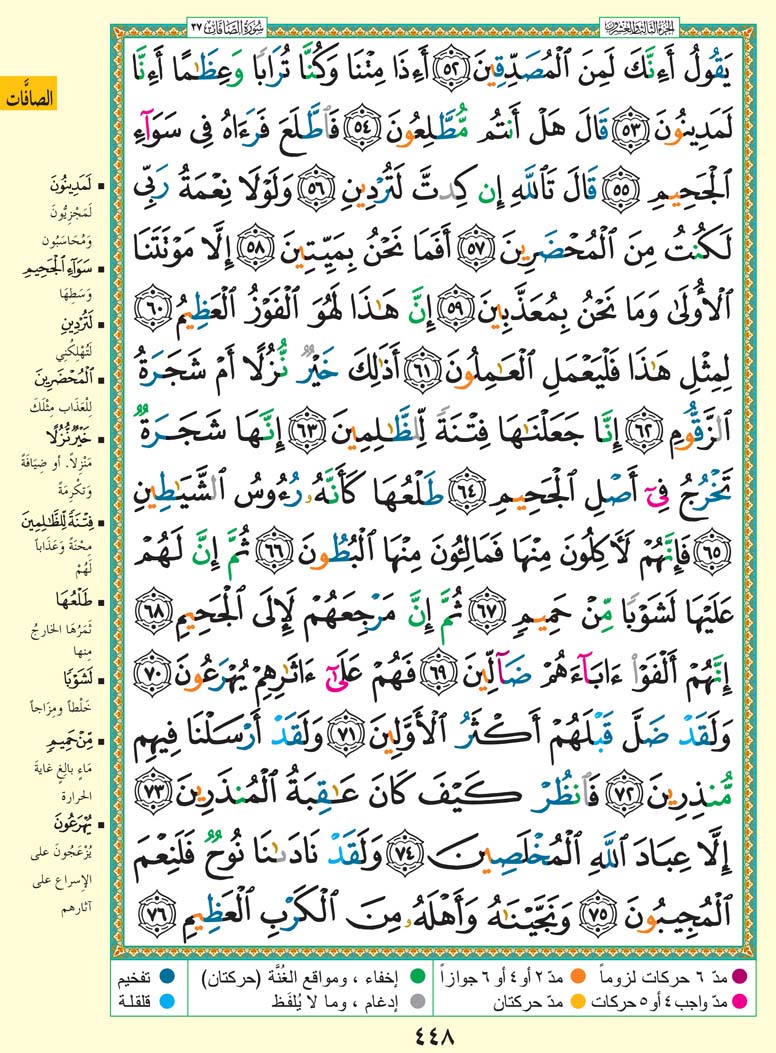 الجزء الثالث والعشرون
سورة الصافات ٣٧
الصافات
يَقُولُ أَءِنَّكَ لَمِنَ ٱلْمُصَدِّقِينَ ٥٢ أَءِذَا مِتْنَا وَكُنَّا تُرَابًا وَعِظَٰمًا أَءِنَّا
لَمَدِينُونَ ٥٣ قَالَ هَلْ أَنتُم مُّطَّلِعُونَ ٥٤ فَٱطَّلَعَ فَرَءَاهُ فِى سَوَآءِ
ٱلْجَحِيمِ ٥٥ قَالَ تَٱللَّهِ إِن كِدتَّ لَتُرْدِينِ ٥٦ وَلَوْلَا نِعْمَةُ رَبِّى
لَكُنتُ مِنَ ٱلْمُحْضَرِينَ ٥٧ أَفَمَا نَحْنُ بِمَيِّتِينَ ٥٨ إِلَّا مَوْتَتَنَا
ٱلْأُولَىٰ وَمَا نَحْنُ بِمُعَذَّبِينَ ٥٩ إِنَّ هَٰذَا لَهُوَ ٱلْفَوْزُ ٱلْعَظِيمُ ٦٠
لِمِثْلِ هَٰذَا فَلْيَعْمَلِ ٱلْعَٰمِلُونَ ٦١ أَذَٰلِكَ خَيْرٌ نُّزُلًا أَمْ شَجَرَةُ
ٱلزَّقُّومِ ٦٢ إِنَّا جَعَلْنَٰهَا فِتْنَةً لِّلظَّٰلِمِينَ ٦٣ إِنَّهَا شَجَرَةٌ
تَخْرُجُ فِىٓ أَصْلِ ٱلْجَحِيمِ ٦٤ طَلْعُهَا كَأَنَّهُۥ رُءُوسُ ٱلشَّيَٰطِينِ
٦٥ فَإِنَّهُمْ لَءَاكِلُونَ مِنْهَا فَمَالِـُٔونَ مِنْهَا ٱلْبُطُونَ ٦٦ ثُمَّ إِنَّ لَهُمْ
عَلَيْهَا لَشَوْبًا مِّنْ حَمِيمٍ ٦٧ ثُمَّ إِنَّ مَرْجِعَهُمْ لَإِلَى ٱلْجَحِيمِ ٦٨
إِنَّهُمْ أَلْفَوْا۟ ءَابَآءَهُمْ ضَآلِّينَ ٦٩ فَهُمْ عَلَىٰٓ ءَاثَٰرِهِمْ يُهْرَعُونَ ٧٠
وَلَقَدْ ضَلَّ قَبْلَهُمْ أَكْثَرُ ٱلْأَوَّلِينَ ٧١ وَلَقَدْ أَرْسَلْنَا فِيهِم
مُّنذِرِينَ ٧٢ فَٱنظُرْ كَيْفَ كَانَ عَٰقِبَةُ ٱلْمُنذَرِينَ ٧٣
إِلَّا عِبَادَ ٱللَّهِ ٱلْمُخْلَصِينَ ٧٤ وَلَقَدْ نَادَىٰنَا نُوحٌ فَلَنِعْمَ
ٱلْمُجِيبُونَ ٧٥ وَنَجَّيْنَٰهُ وَأَهْلَهُۥ مِنَ ٱلْكَرْبِ ٱلْعَظِيمِ ٧٦
▪ لَمَدِينُونَ
لَمَجْزِيُّونَ
وَمُحَاسَبُون
▪ سَوَآءِ ٱلْجَحِيمِ
وَسَطِهَا
▪ لَتُرْدِينِ
لَتُهْلِكُنِي
▪ ٱلْمُحْضَرِينَ
لِلْعَذَابِ مِثْلَكَ
▪ خَيْرٌ نُّزُلًا
مَنْزِلاً. أو ضِيَافَةً
وَتَكْرِمَةً
▪ فِتْنَةً لِّلظَّٰلِمِينَ
مِحْنَةً وَعَذَاباً
لَهُمْ
▪ طَلْعُهَا
ثَمَرُهَا الخَارجُ
مِنها
▪ لَشَوْبًا
خَلْطاً ومِزَاجاً
▪ مِّنْ حَمِيمٍ
مَاءٍ بالِغٍ غايةَ
الحرارة
▪ يُهْرَعُونَ
يُزْعَجُونَ على
الإسراع على
آثارهم
مدّ ٦ حركات لزوماً
مدّ ٢ أو ٤ أو ٦ جوازاً
إخفاء ، ومواقع الغُنَّة (حركتان)
تفخيم
مدّ واجب ٤ أو ٥ حركات
مدّ حركتان
إدغام ، وما لا يُلفَظ
قلقلة
٤٤٨